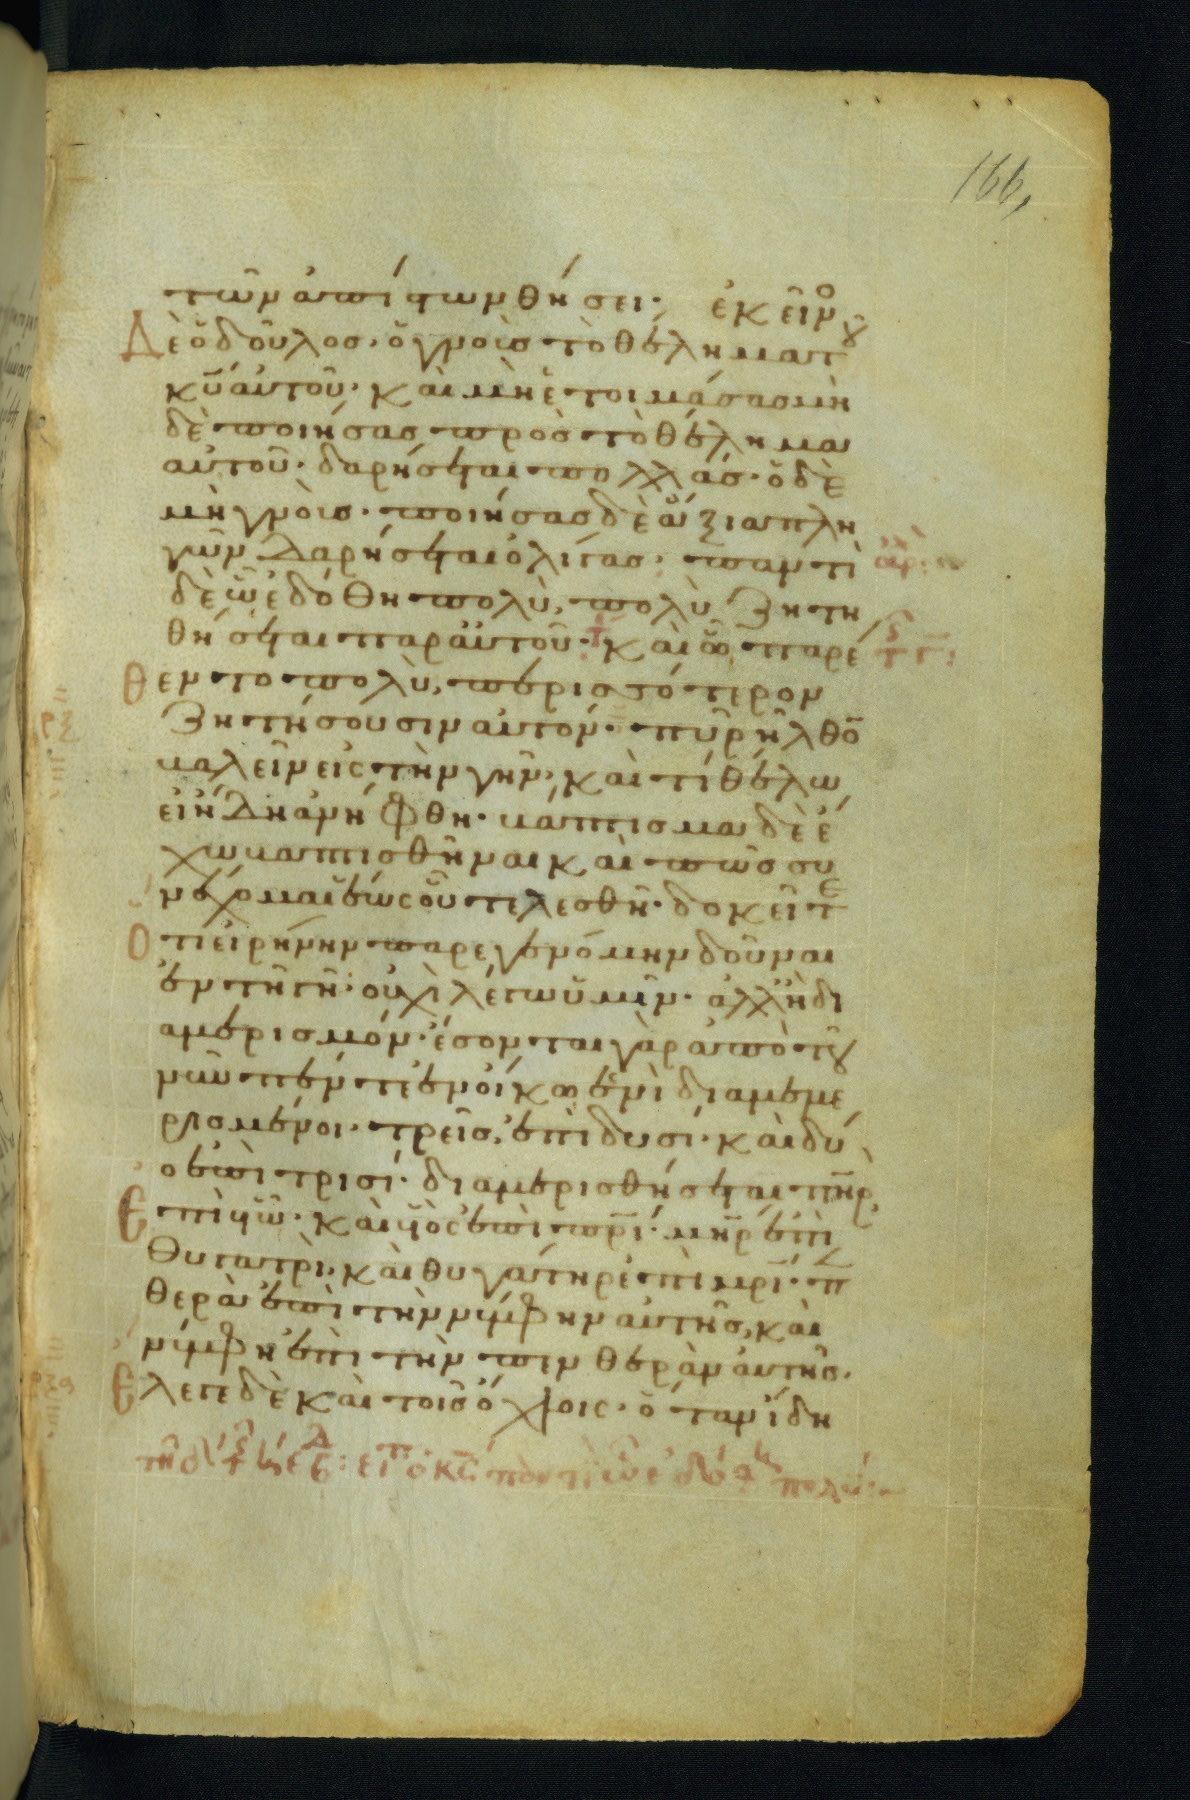 166,
τῶν ἀπίστων θήσει· ἐκεῖνο
Δὲ ὁ δοῦλος· ὁ γνοὺς τὸ θέλημα τοῦ
κ̅υ̅ αὐτοῦ· καὶ μὴ ἑτοιμάσας μὴ
δὲ ποιήσας πρὸς τὸ θέλημα
αὐτοῦ· δαρήσεται πολλάς· ὁ δὲ
μὴ γνοὺς· ποιήσας δὲ ἄξια πλη
γῶν δαρήσεται ὀλίγας· παντὶ
δὲ ὧ ἐδόθη πολὺ, πολὺ ζητη
θήσεται παρ αὐτοῦ· καὶ ὧ παρέ
Θεντο πολὺ, περισσότερον
ζητήσουσιν αὐτόν· πῦρ ἦλθο̅
βαλεῖν εἰς τὴν γῆν, καὶ τί θέλω
εἰ ἤδη ἀνήφθη· βάπτισμα δὲ ἔ
χω βαπτισθῆναι καὶ πῶς συ
νέχομαι ἕως οὗ τελεσθῆ· δοκεῖτε
Ὅτι εἰρήνην παρεγενόμην δοῦναι
ἐν τῆ γῆ· οὐχὶ λέγω ὑμῖν· ἀλλ ἢ δι
αμερισμόν· ἔσονται γὰρ ἀπὸ τοῦ
νῦν πέντε ἐν οἴκω ἑνὶ διαμεμε
ρισμένοι· τρεῖς, ἐπὶ δυσί· καὶ δύ
ο ἐπὶ τρισί· διαμερισθήσεται π̅η̅ρ
Ἐπὶ υ̅ω̅· καὶ υ̅ὸς ἐπὶ π̅ρ̅ι̅· μ̅η̅ρ ἐπὶ
Θυγατρὶ· καὶ θυγάτηρ ἐπὶ μ̅ρ̅ι̅· πεν
θερὰ ἐπὶ τὴν νύμφην αὐτῆς, καὶ
νύμφη ἐπὶ τὴν πενθερὰν αὐτῆς·
Ἔλεγε δὲ καὶ τοῖς ὄχλοις· ὅταν ἴδη